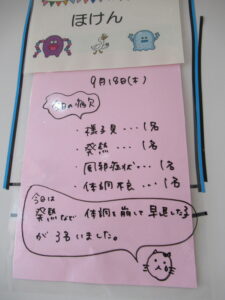 ほけん
9月18日(木)
今日の病欠
・様子見・・・1名
・発熱・・・1名
・風邪症状・・・1名
・体調不良・・・1名
今日は
発熱など 体調を崩して早退した子
が 3名いました。